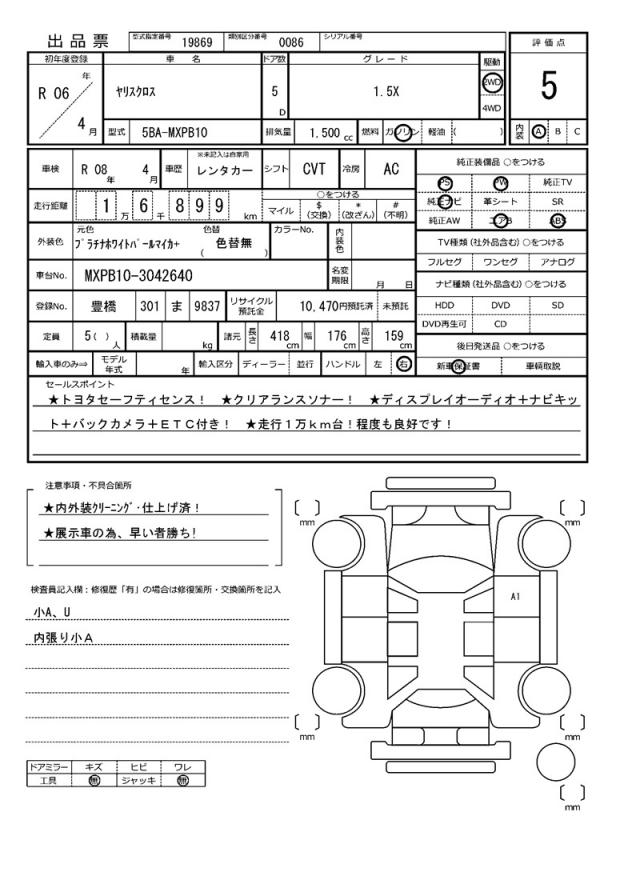 出品票
型式指定番号 19869 類別区分番号 0086 シリアル番号
評価点
5
初年度登録 車名 ドア数 グレード 駆動
R 06 年 4 月 ヤリスクロス 5 D 1.5X 2WD 4WD
型式 5BA-MXPB10 排気量 1.500 cc 燃料 ガソリン 軽油 ( )
内装 A B C
車検 R 08 年 4 月 車歴 ※未記入は自家用 レンタカー シフト CVT 冷房 AC
純正装備品 ○をつける
PS PW 純正TV
純正ナビ 革シート SR
純正AW エアB ABS
走行距離 1 万 6 千 8 9 9 km
○をつける
マイル $ (交換) * (改ざん) # (不明)
外装色 元色 プラチナホワイトパールマイカ+ 色替 ( 色替無 ) カラーNo. 内装色
TV種類 (社外品含む) ○をつける
フルセグ ワンセグ アナログ
車台No. MXPB10-3042640 名変期限 月 日
ナビ種類 (社外品含む) ○をつける
HDD DVD SD
DVD再生可 CD
登録No. 豊橋 301 ま 9837 リサイクル預託金 10,470円預託済 未預託
定員 5( ) 人 積載量 kg 諸元 長さ 418 cm 幅 176 cm 高さ 159 cm
後日発送品 ○をつける
新車保証書 車輌取説
輸入車のみ⇒ モデル年式 年 輸入区分 ディーラー 並行 ハンドル 左 右
セールスポイント
★トヨタセーフティセンス! ★クリアランスソナー! ★ディスプレイオーディオ+ナビキッ
ト+バックカメラ+ETC付き! ★走行1万km台!程度も良好です!
注意事項・不具合箇所
★内外装クリーニング・仕上げ済!
★展示車の為、早い者勝ち!
検査員記入欄:修復歴「有」の場合は修復箇所・交換箇所を記入
小A、U
内張り小A
[ ] mm
[ ] mm
A1
[ ] mm
[ ] mm
[ ] mm
ドアミラー キズ ヒビ ワレ
工具 無 ジャッキ 無